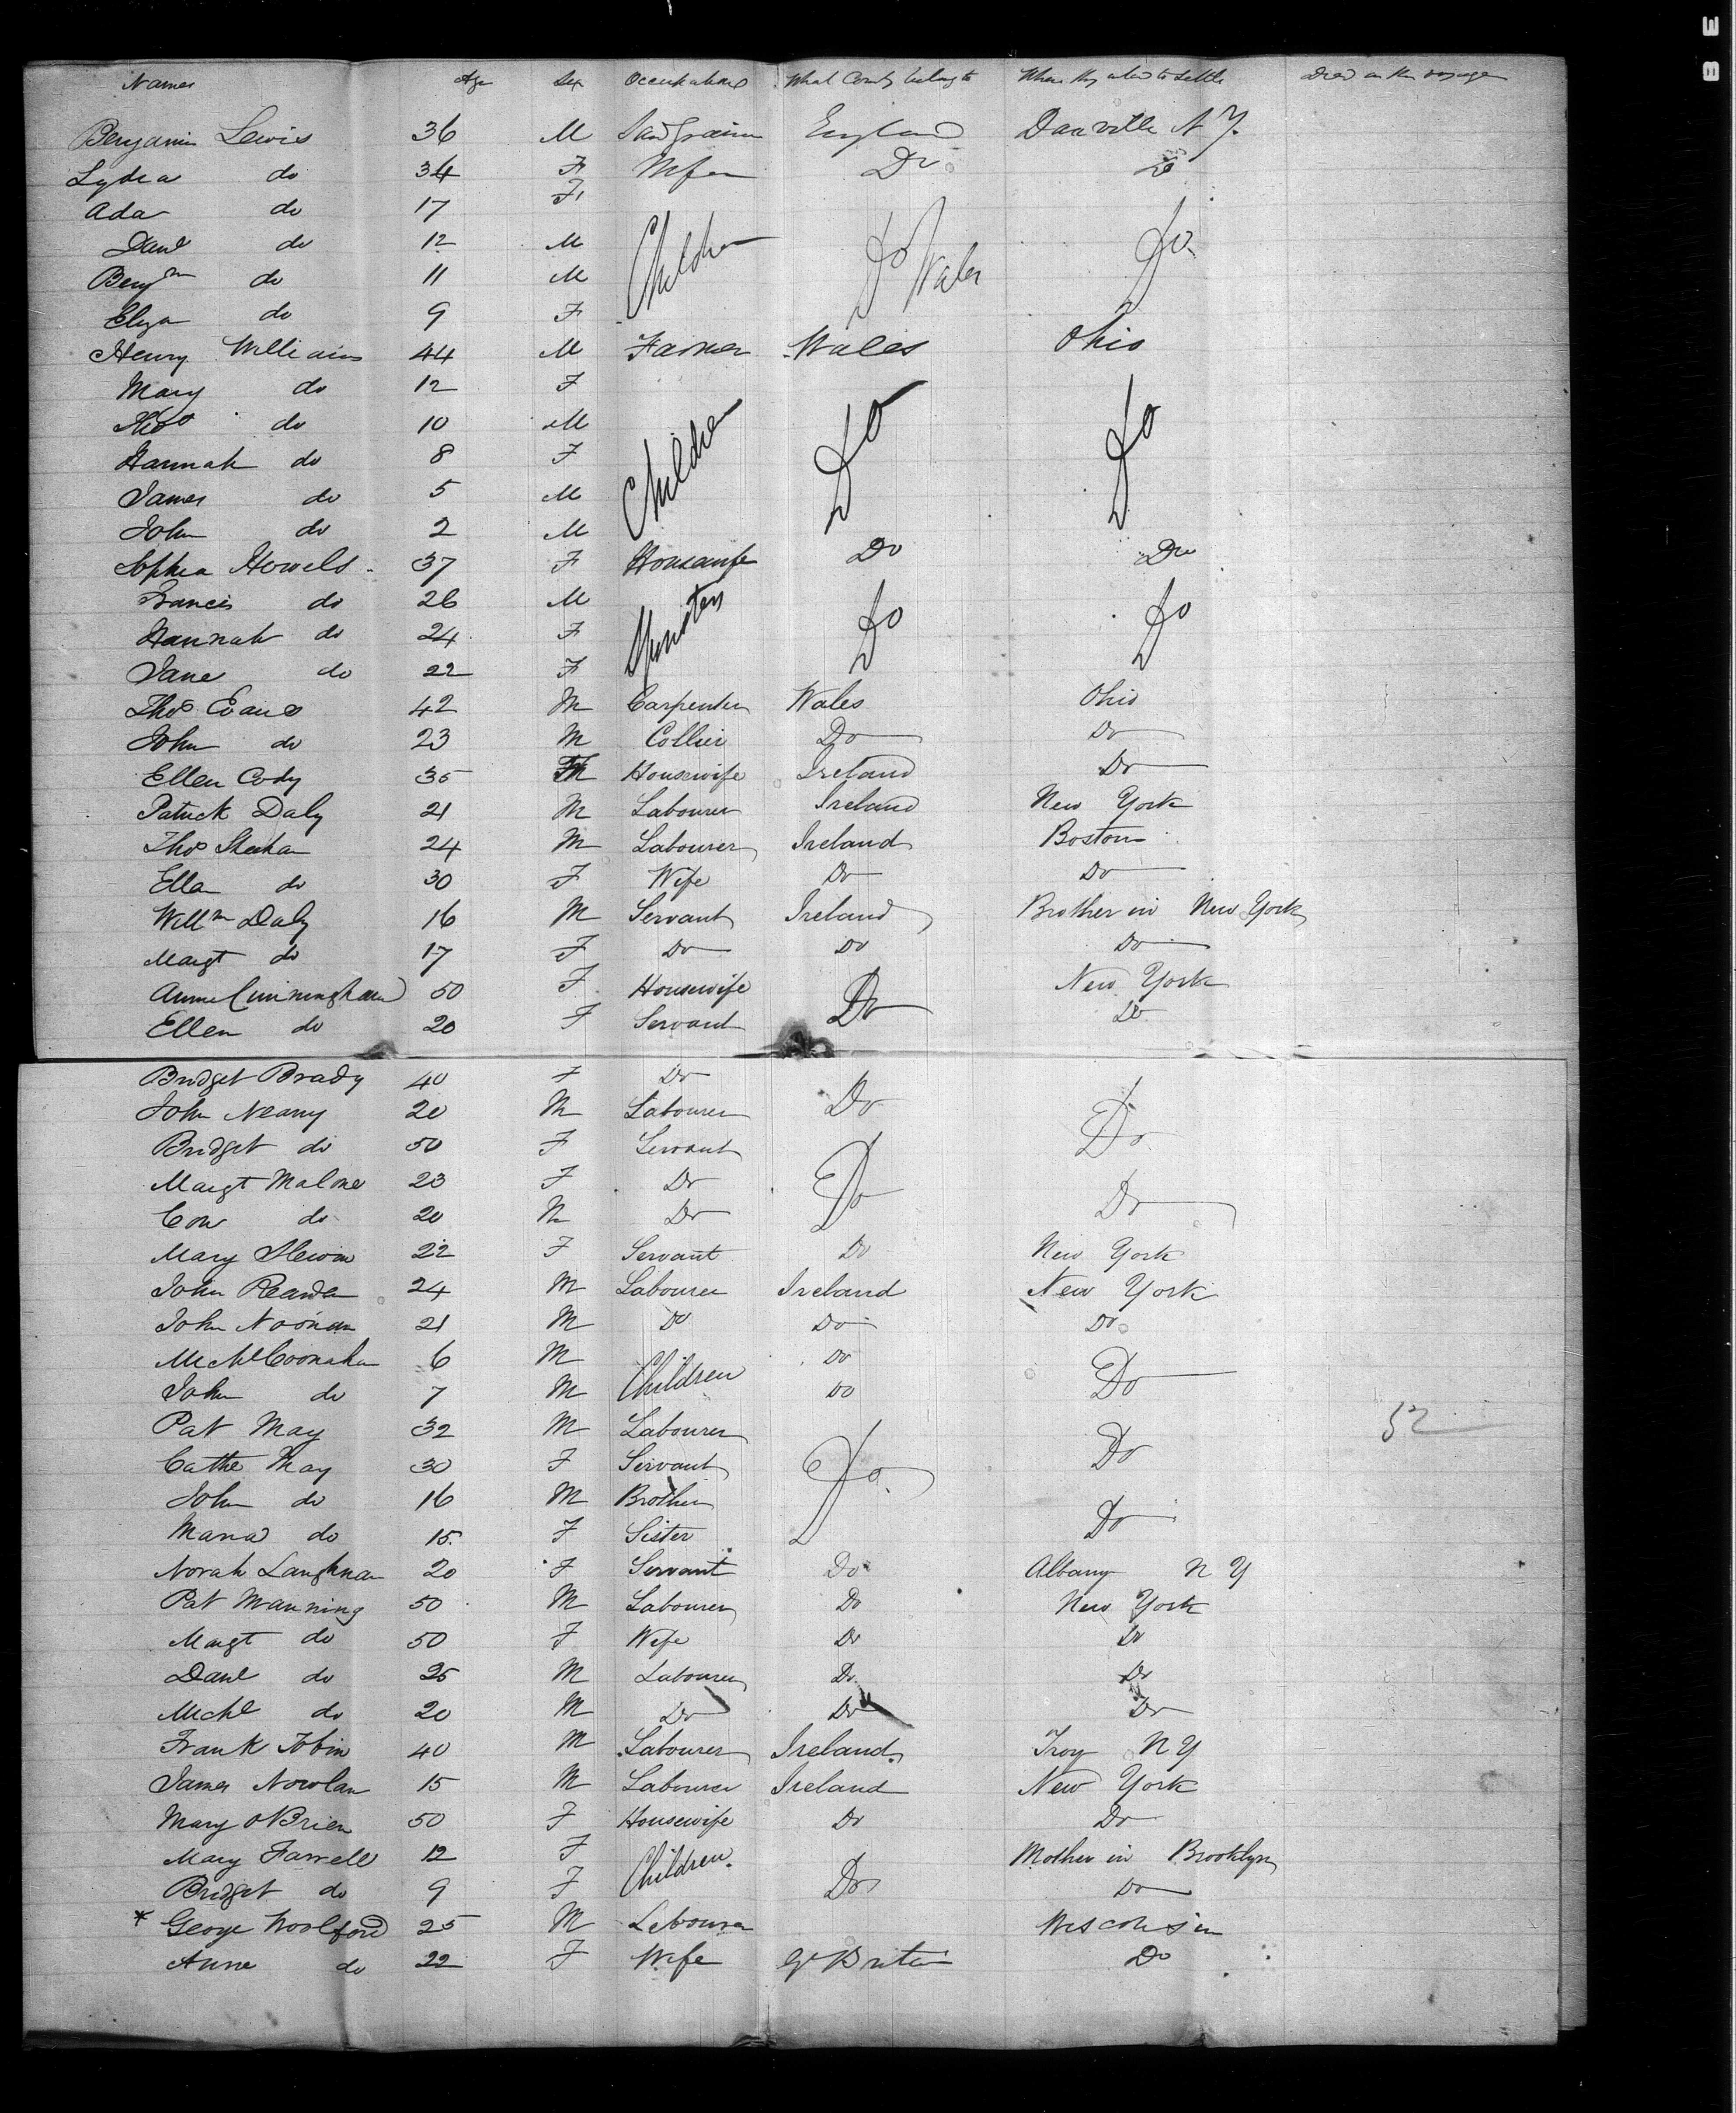 Names Age Sex Occupations What Country belong to Where they intend to settle Died on the voyage
Benjamin Lewis 36 M England Danville N Y.
Lydia do 34 F Wife Do Do
Ada do 17 F
Danl do 12 M Children Do Wales Do
Benjn do 11 M
Eliza do 9 F
Henry Williams 44 M Farmer Wales Ohio
Mary do 12 F
Thos do 10 M
Hannah do 8 F Children Do Do
James do 5 M
John do 2 M
Sophia Howels 37 F Housewife Do Do
Francis do 26 M
Hannah do 24 F Spinsters Do Do
Jane do 22 F
Thos Evans 42 M Carpenter Wales Ohio
John do 23 M Collier Do Do
Ellen Cody 35 F Housewife Ireland Do
Patrick Daly 21 M Labourer Ireland New York
Thos Sheehan 24 M Labourer Ireland Boston
Ellen do 30 F Wife Do Do
Willm Daly 16 M Servant Ireland Brother in New York
Margt do 17 F Do Do Do
Anne Cunningham 50 F Housewife New York
Ellen do 20 F Servant Do Do
Bridget Brady 40 F Do
John Neany 20 M Labourer Do Do
Bridget do 50 F Servant
Margt Malone 23 F Do Do Do
Con do 20 M Do
Mary Slevin 22 F Servant Do New York
John Reardon 24 M Labourer Ireland New York
John Noonan 21 M Do Do Do
Michl Coonahan 6 M Children Do Do
John do 7 M Do
Pat May 32 M Labourer
Cathe May 30 F Servant Do Do 52
John do 16 M Brother
Maria do 15 F Sister Do
Norah Laughnan 20 F Servant Do Albany N Y
Pat Manning 50 M Labourer Do New York
Margt do 50 F Wife Do Do
Danl do 25 M Labourer Do Do
Michl do 20 M Do Do Do
Frank Tobin 40 M Labourer Ireland Troy N Y
James Nowlan 15 M Labourer Ireland New York
Mary O'Brien 50 F Housewife Do Do
Mary Farrell 12 F Children Mother in Brooklyn
Bridget do 9 F Do Do
* George Woolford 25 M Labourer Wisconsin
Anne do 22 F Wife Gt Britain Do